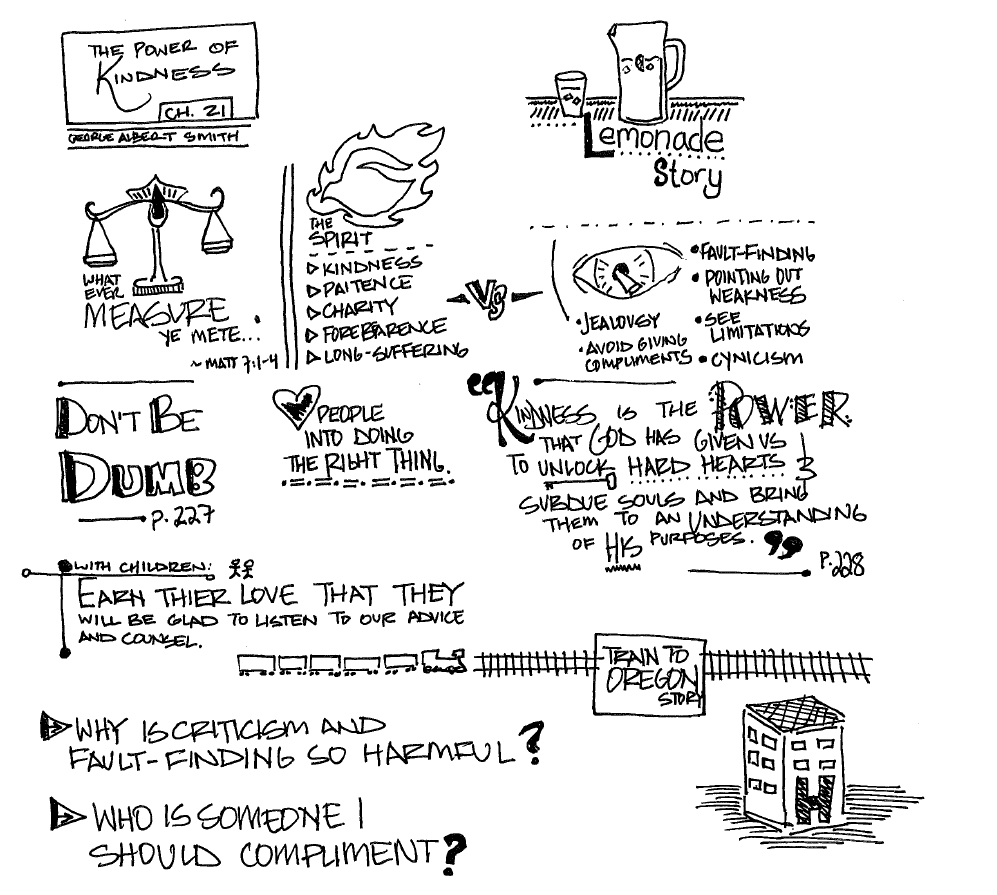 THE POWER OF
KINDNESS
CH. 21
GEORGE ALBERT SMITH
Lemonade
Story
WHAT
EVER
MEASURE
YE METE...
~ MATT 7:1-4
THE
SPIRIT
KINDNESS
PAITENCE
CHARITY
FOREBEARENCE
LONG-SUFFERING
VS
• JEALOUSY
• AVOID GIVING
COMPLIMENTS
• FAULT-FINDING
• POINTING OUT
WEAKNESS
• SEE
LIMITATIONS
• CYNICISM
DON'T BE
DUMB
P. 227
PEOPLE
INTO DOING
THE RIGHT THING.
"KINDNESS IS THE POWER
THAT GOD HAS GIVEN US
TO UNLOCK HARD HEARTS &
SUBDUE SOULS AND BRING
THEM TO AN UNDERSTANDING
OF HIS PURPOSES."
P. 228
WITH CHILDREN:
EARN THIER LOVE THAT THEY
WILL BE GLAD TO LISTEN TO OUR ADVICE
AND COUNSEL.
TRAIN TO
OREGON
STORY
WHY IS CRITICISM AND
FAULT-FINDING SO HARMFUL?
WHO IS SOMEONE I
SHOULD COMPLIMENT?